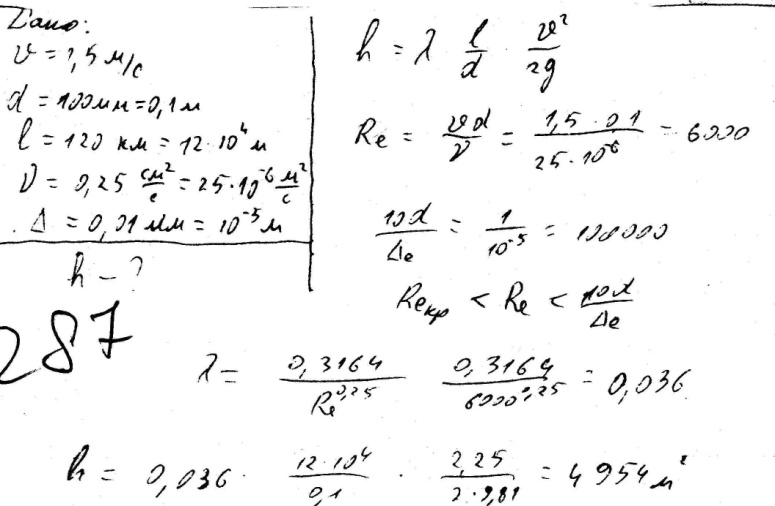 Дано:
v = 1,5 м/с
d = 100мм = 0,1 м
l = 120 км = 12·10⁴ м
ν = 0,25 см²/с = 25·10⁻⁶ м²/с
Δ = 0,01 мм = 10⁻⁵ м
h – ?
287
h = λ l/d · v²/2g
Re = vd/ν = 1,5 · 0,1 / 25·10⁻⁶ = 6000
10d/Δe = 1/10⁻⁵ = 100000
Reкр < Re < 10d/Δe
λ = 0,3164/Re^0,25 0,3164/6000^0,25 = 0,036
h = 0,036 · 12·10⁴/0,1 · 2,25/2·9,81 = 4954 м²